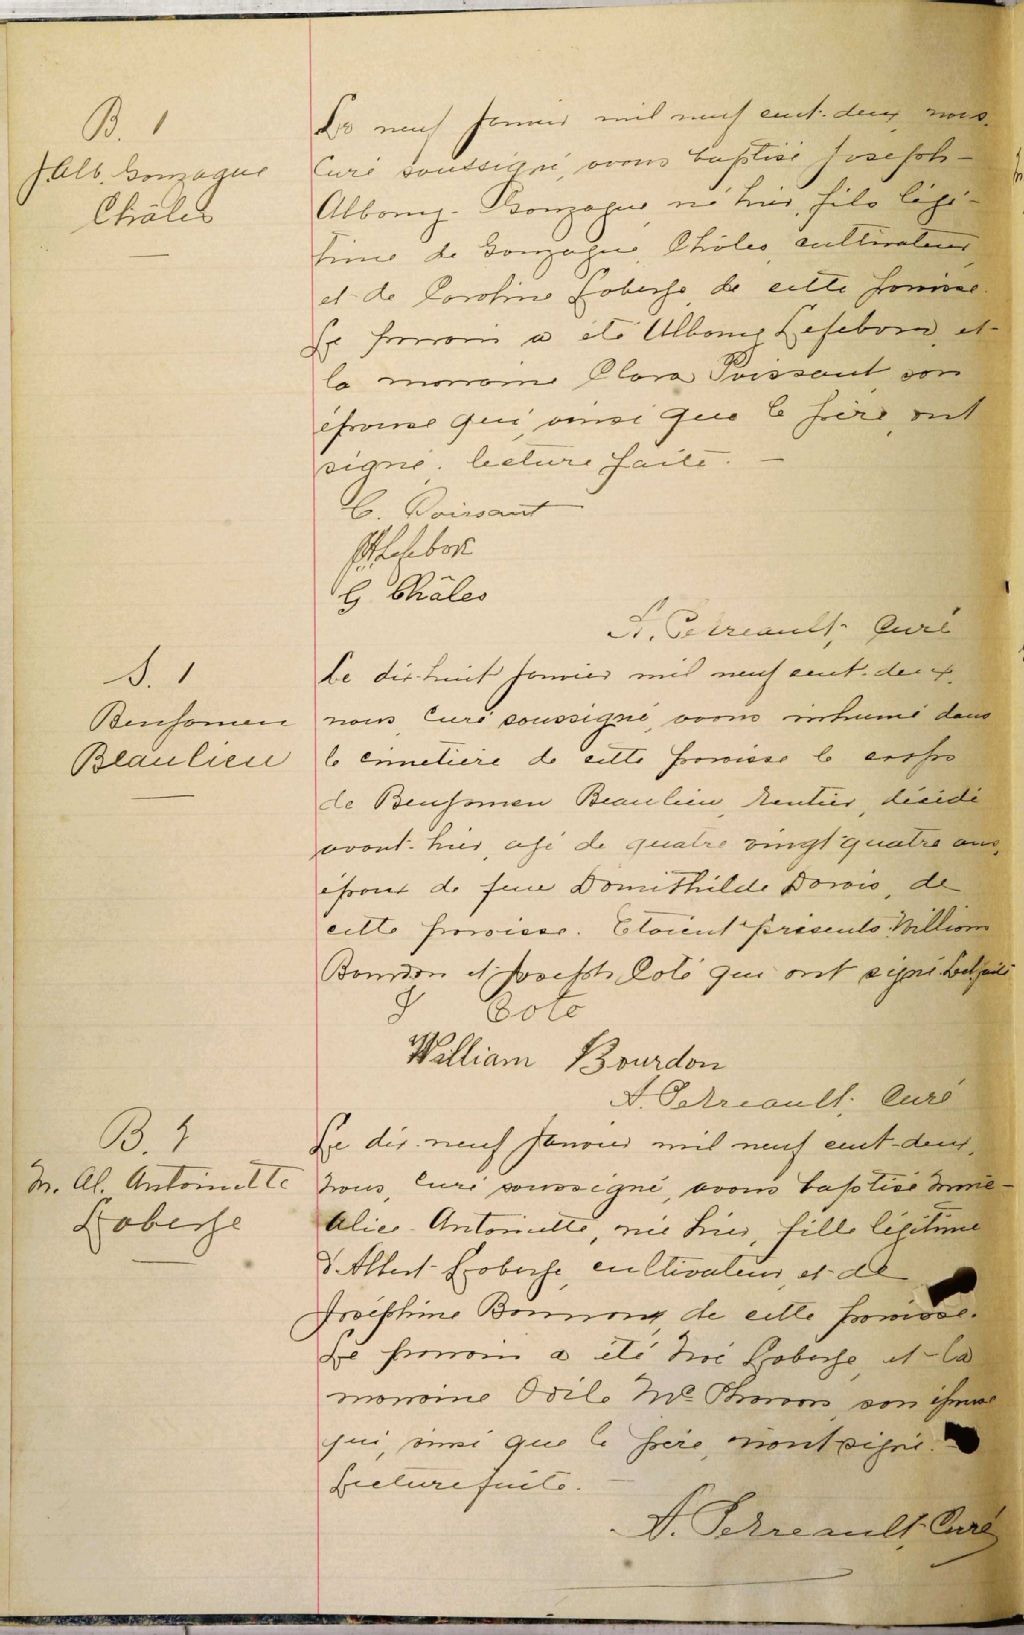 B. 1
J. Alb. Gonzague
Châles
Le neuf Janvier mil neuf cent-deux, nous,
Curé soussigné, avons baptisé Joseph-
Albany-Gonzague, né hier, fils légi-
time de Gonzague Châles, cultivateur,
et de Caroline Laberge, de cette paroisse.
Le parrain a été Albany Lefebvre, et
la marraine Clara Poissant, son
épouse qui, ainsi que le père, ont
signé. lecture faite. -
C. Poissant
Lefebvre
G Châles
A. Perreault, Curé
S. 1
Benjamen
Beaulieu
Le dix-huit Janvier mil neuf cent-deux,
nous, Curé soussigné, avons inhumé dans
le cimetière de cette paroisse le corps
de Benjamen Beaulieu, rentier, décédé
avant-hier, agé de quatre vingt quatre ans,
époux de feue Domithilde Davis, de
cette paroisse. Etaient présents William
Bourdon et Joseph Coté qui ont signé. Lect. faite
J Coté
William Bourdon
A. Perreault, Curé
B. 2
M. Al. Antoinette
Laberge
Le dix-neuf Janvier mil neuf cent-deux,
Nous, Curé soussigné, avons baptisé Marie-
Alice-Antoinette, née hier, fille légitime
d'Albert Laberge, cultivateur, et de
Joséphine de cette paroisse.
Le parrain a été Noé Laberge, et la
marraine Odile son épouse
qui, ainsi que le père, n'ont signé. -
Lecture faite. -
A. Perreault, Curé